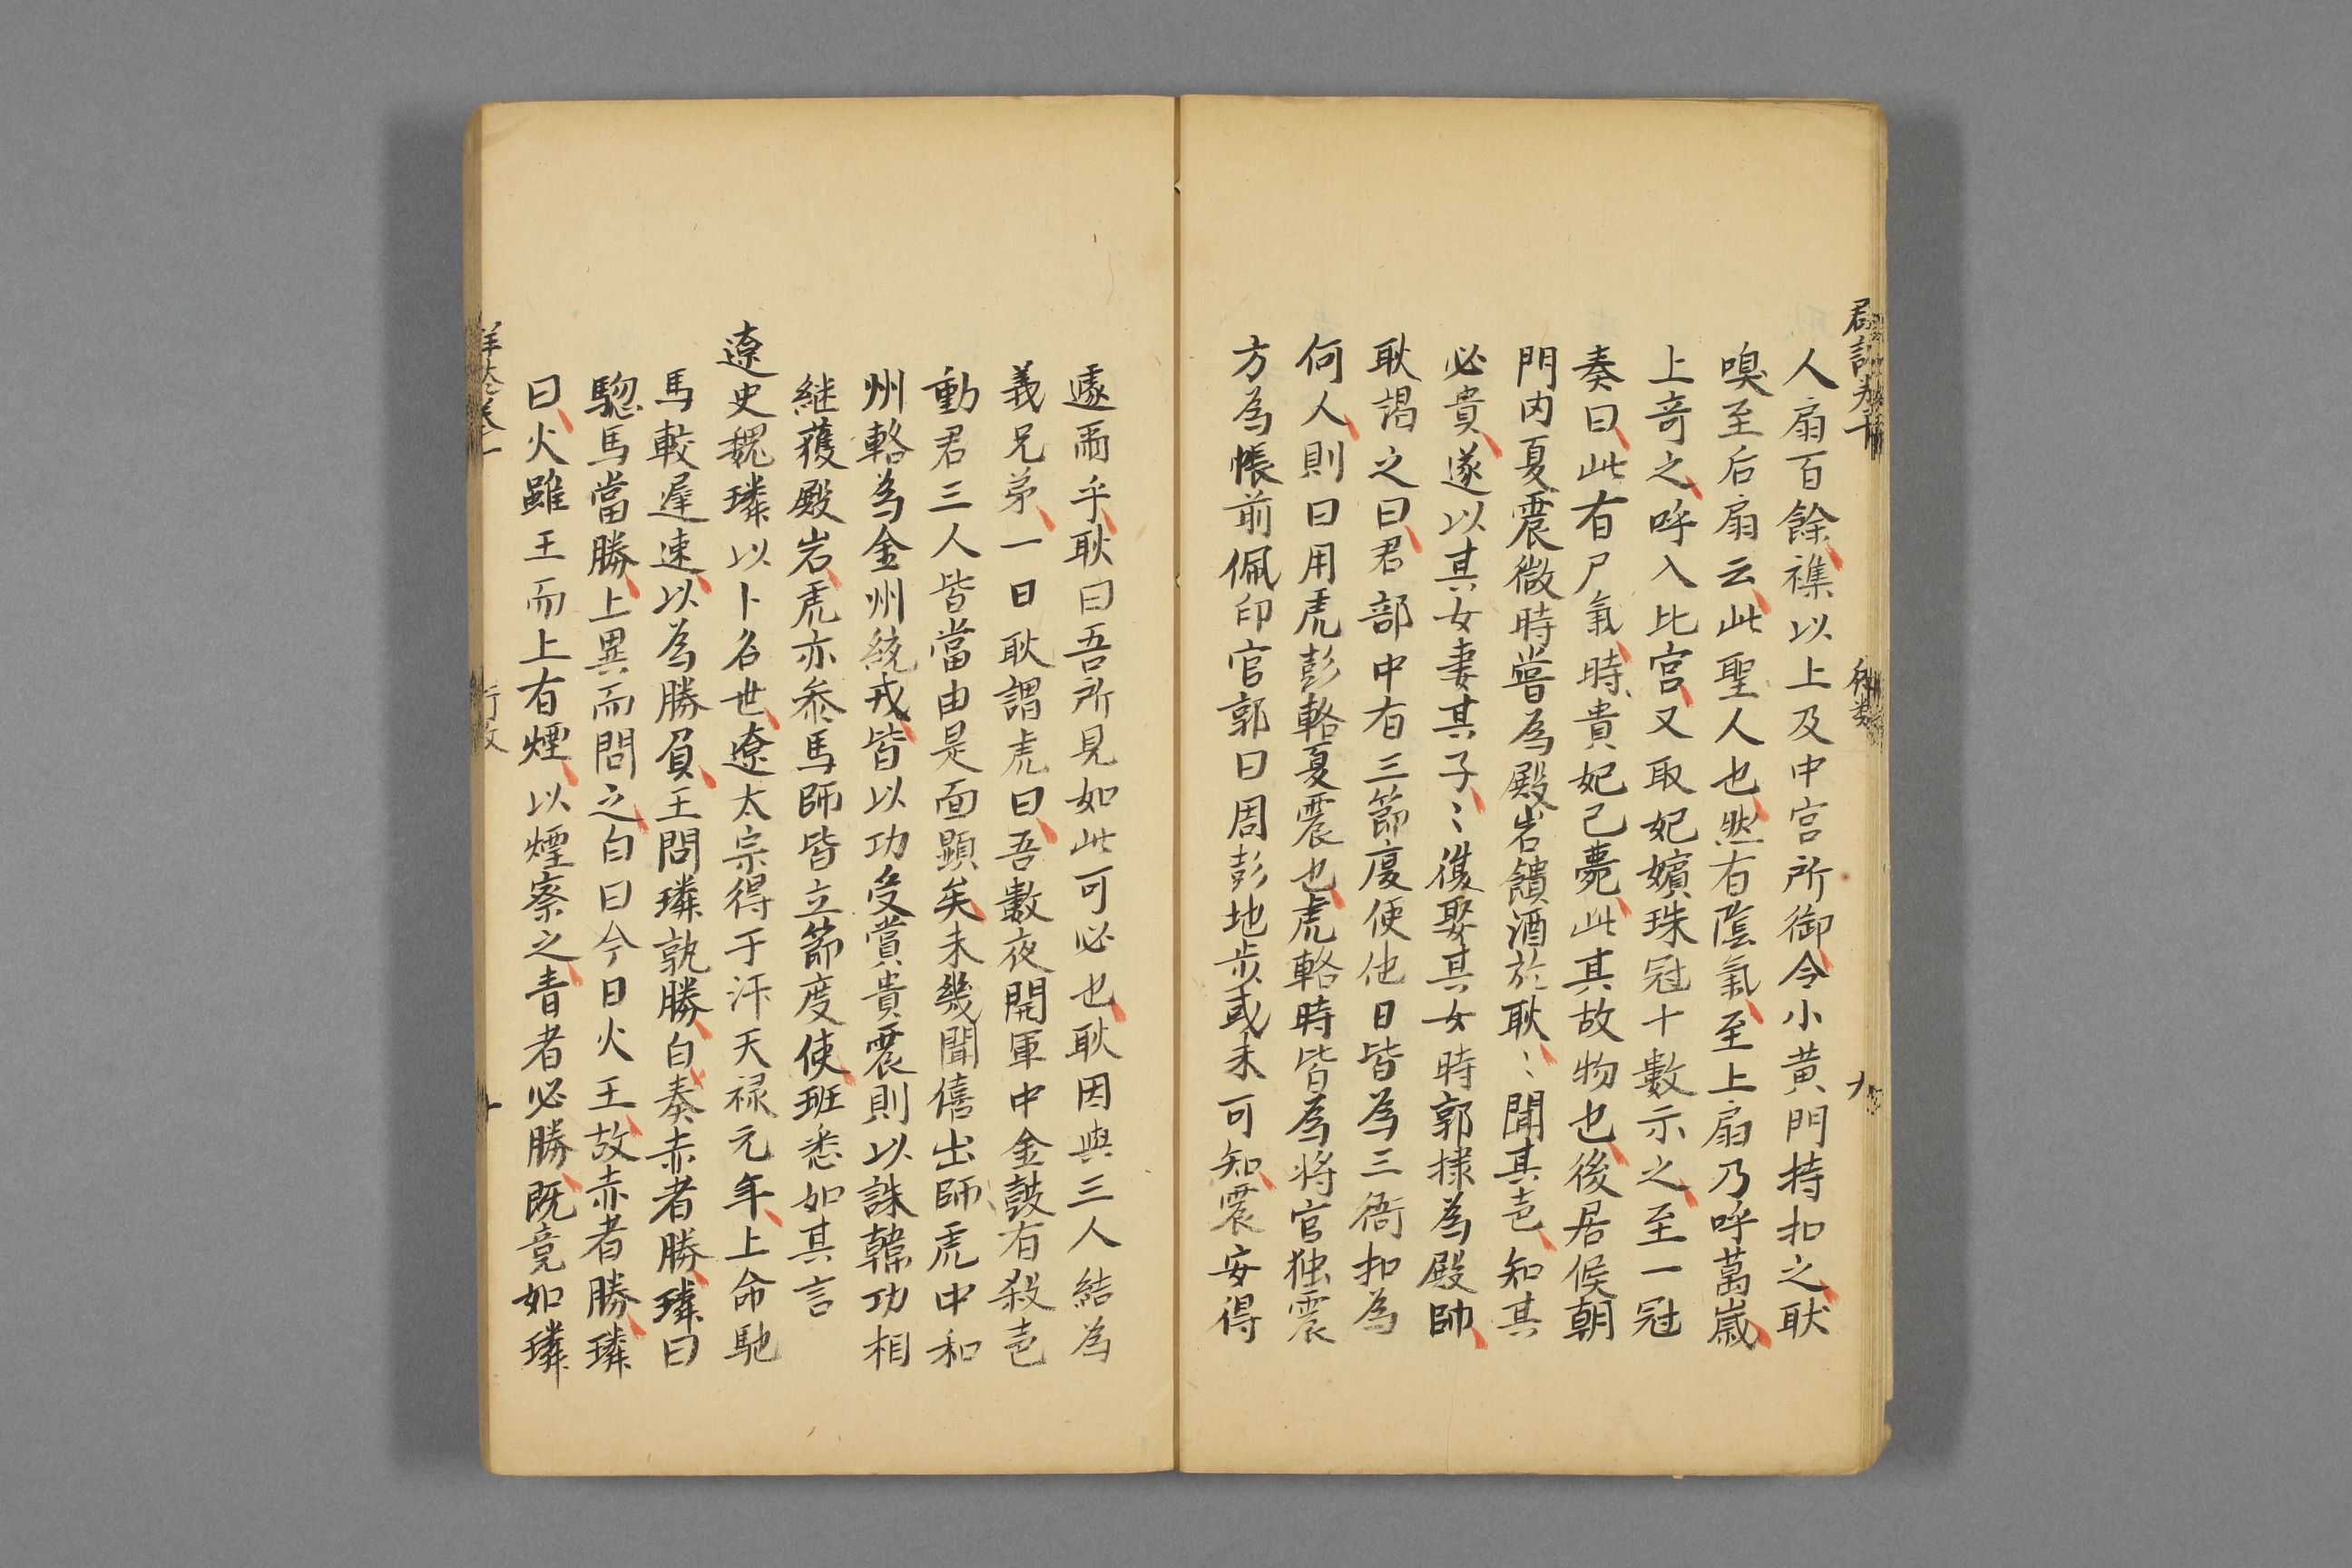 人扇百餘襍以上及中宮所御令小黄門持扣之耿
嗅至后扇云此聖人也然有陰氣至上扇乃呼萬歲
上竒之呼入比宮又取妃嬪珠冠十數示之至一冠
奏曰此有尸氣時貴妃已薨此其故物也後居候朝
門内夏震微時嘗為殿岩饋酒於耿〻聞其壱知其
必貴遂以其女妻其子〻復娶其女時郭棣為殿帥
耿謁之曰君部中有三節度使他日皆為三衙扣為
何人則曰用虎彭輅夏震也虎輅時皆為将官独震
方為帳前佩印官郭曰周彭地歩或未可知震安得
遽而乎耿曰吾所見如此可必也耿因與三人結為
義兄弟一日耿謂虎曰吾數夜聞軍中金鼓有殺壱
動君三人皆當由是面顕矣未幾聞僖出師虎中和
州輅為金州統戎皆以功受賞貴震則以誅韓功相
継獲殿岩虎亦叅馬師皆立節度使班悉如其言
遼史魏璘以卜名世遼太宗得于汴天禄元年上命馳
馬較遅速以為勝負王問璘孰勝白奏赤者勝璘曰
騘馬當勝上異而問之白曰今日火王故赤者勝璘
曰火雖王而上有煙以煙察之青者必勝既竟如璘